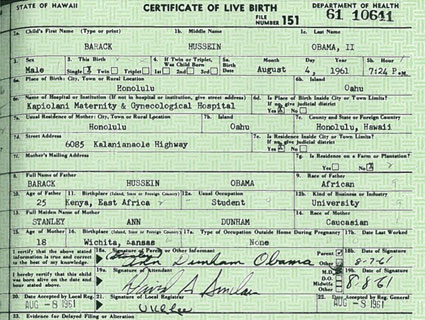 STATE OF HAWAII CERTIFICATE OF LIVE BIRTH DEPARTMENT OF HEALTH
FILE NUMBER 151 61 10641
1a. Child's First Name (Type or print) 1b. Middle Name 1c. Last Name
BARACK HUSSEIN OBAMA, II
2. Sex 3. This Birth 4. If Twin or Triplet, Was Child Born 5a. Birth Date Month Day Year 5b. Hour
Male Single Twin Triplet 1st 2nd 3rd August 4, 1961 7:24 P.M.
6a. Place of Birth: City, Town or Rural Location 6b. Island
Honolulu Oahu
6c. Name of Hospital or Institution (If not in hospital or institution, give street address) 6d. Is Place of Birth Inside City or Town Limits? If no, give judicial district
Kapiolani Maternity & Gynecological Hospital Yes No
7a. Usual Residence of Mother: City, Town or Rural Location 7b. Island 7c. County and State or Foreign Country
Honolulu Oahu Honolulu, Hawaii
7d. Street Address 7e. Is Residence Inside City or Town Limits? If no, give judicial district
6085 Kalanianaole Highway Yes No
7f. Mother's Mailing Address 7g. Is Residence on a Farm or Plantation?
Yes No
8. Full Name of Father 9. Race of Father
BARACK HUSSEIN OBAMA African
10. Age of Father 11. Birthplace (Island, State or Foreign Country) 12a. Usual Occupation 12b. Kind of Business or Industry
25 Kenya, East Africa Student University
13. Full Maiden Name of Mother 14. Race of Mother
STANLEY ANN DUNHAM Caucasian
15. Age of Mother 16. Birthplace (Island, State or Foreign Country) 17a. Type of Occupation Outside Home During Pregnancy 17b. Date Last Worked
18 Wichita, Kansas None
I certify that the above stated information is true and correct to the best of my knowledge. 18a. Signature of Parent or Other Informant Parent Other 18b. Date of Signature
Ann Dunham Obama 8-7-61
I hereby certify that this child was born alive on the date and hour stated above. 19a. Signature of Attendant M.D. D.O. Midwife Other 19b. Date of Signature
David A Sinclair 8-8-61
20. Date Accepted by Local Reg. 21. Signature of Local Registrar 22. Date Accepted by Reg. General
AUG -8 1961 AUG -8 1961
23. Evidence for Delayed Filing or Alteration